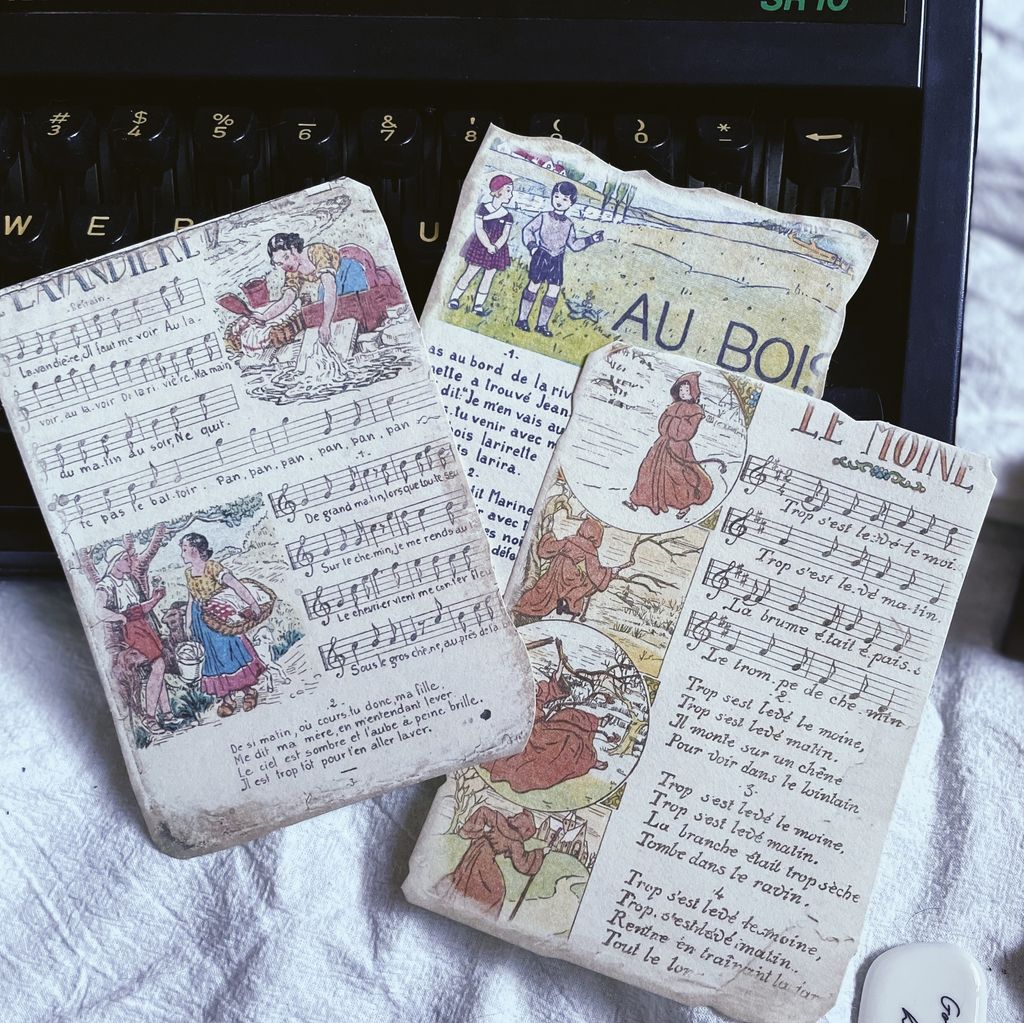 SR 10
# 3 $ 4 % 5 _ 6 & 7 ' 8 ( ) 0 * - ←
W E R U
LAVANDIERE
Refrain.
La vandière, Il faut me voir Au la-
voir, au la-voir De la ri vière. Ma main
du ma.tin au soir, Ne quit.
te pas le bat-toir. Pan, pan, pan, pan, pan, pan
-1-
De grand ma.tin, lorsque toute seu
Sur le che.min, je me rends au
Le chevri-er vient me con.ter fleu
Sous le gros chê.ne, au.près de la
-2-
De si matin, où cours-tu donc, ma fille,
Me dit ma mère, en m'entendant lever.
Le ciel est sombre et l'aube à peine brille.
Il est trop tôt pour t'en aller laver.
-3-
AU BOIS
-1-
as au bord de la riv
nette a trouvé Jean
dit: "Je m'en vais au
tu venir avec m
bois larirette
larira.
-2-
dit Marine
avec
es noi
défe
LE MOINE
Trop s'est le.vé le moi-
Trop s'est le.vé ma-tin
La brume était é pais.s
Le trom.pe de che-min
2
Trop s'est levé le moine,
Trop s'est levé matin.
Il monte sur un chêne
Pour voir dans le lointain
3
Trop s'est levé le moine,
Trop s'est levé matin.
La branche était trop sèche
Tombe dans le ravin.
4
Trop s'est levé le moine,
Trop s'est levé matin.
Rentre en traînant la jam
Tout le lon